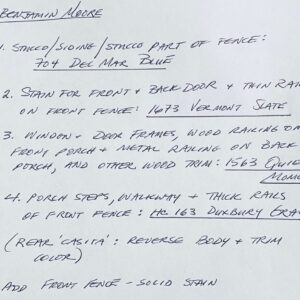 BENJAMIN MOORE
1. STUCCO/SIDING/STUCCO PART OF FENCE:
704 DEL MAR BLUE
2. STAIN FOR FRONT + BACK DOOR + THIN RAIL
ON FRONT FENCE: 1673 VERMONT SLATE
3. WINDOW + DOOR FRAMES, WOOD RAILING ON
FRONT PORCH + METAL RAILING ON BACK
PORCH, AND OTHER WOOD TRIM: 1563 QUIE
MOME
4. PORCH STEPS, WALKWAY + THICK RAILS
OF FRONT FENCE: HC 163 DUXBURY GRA
(REAR 'CASITA': REVERSE BODY + TRIM
COLOR)
ADD FRONT FENCE - SOLID STAIN